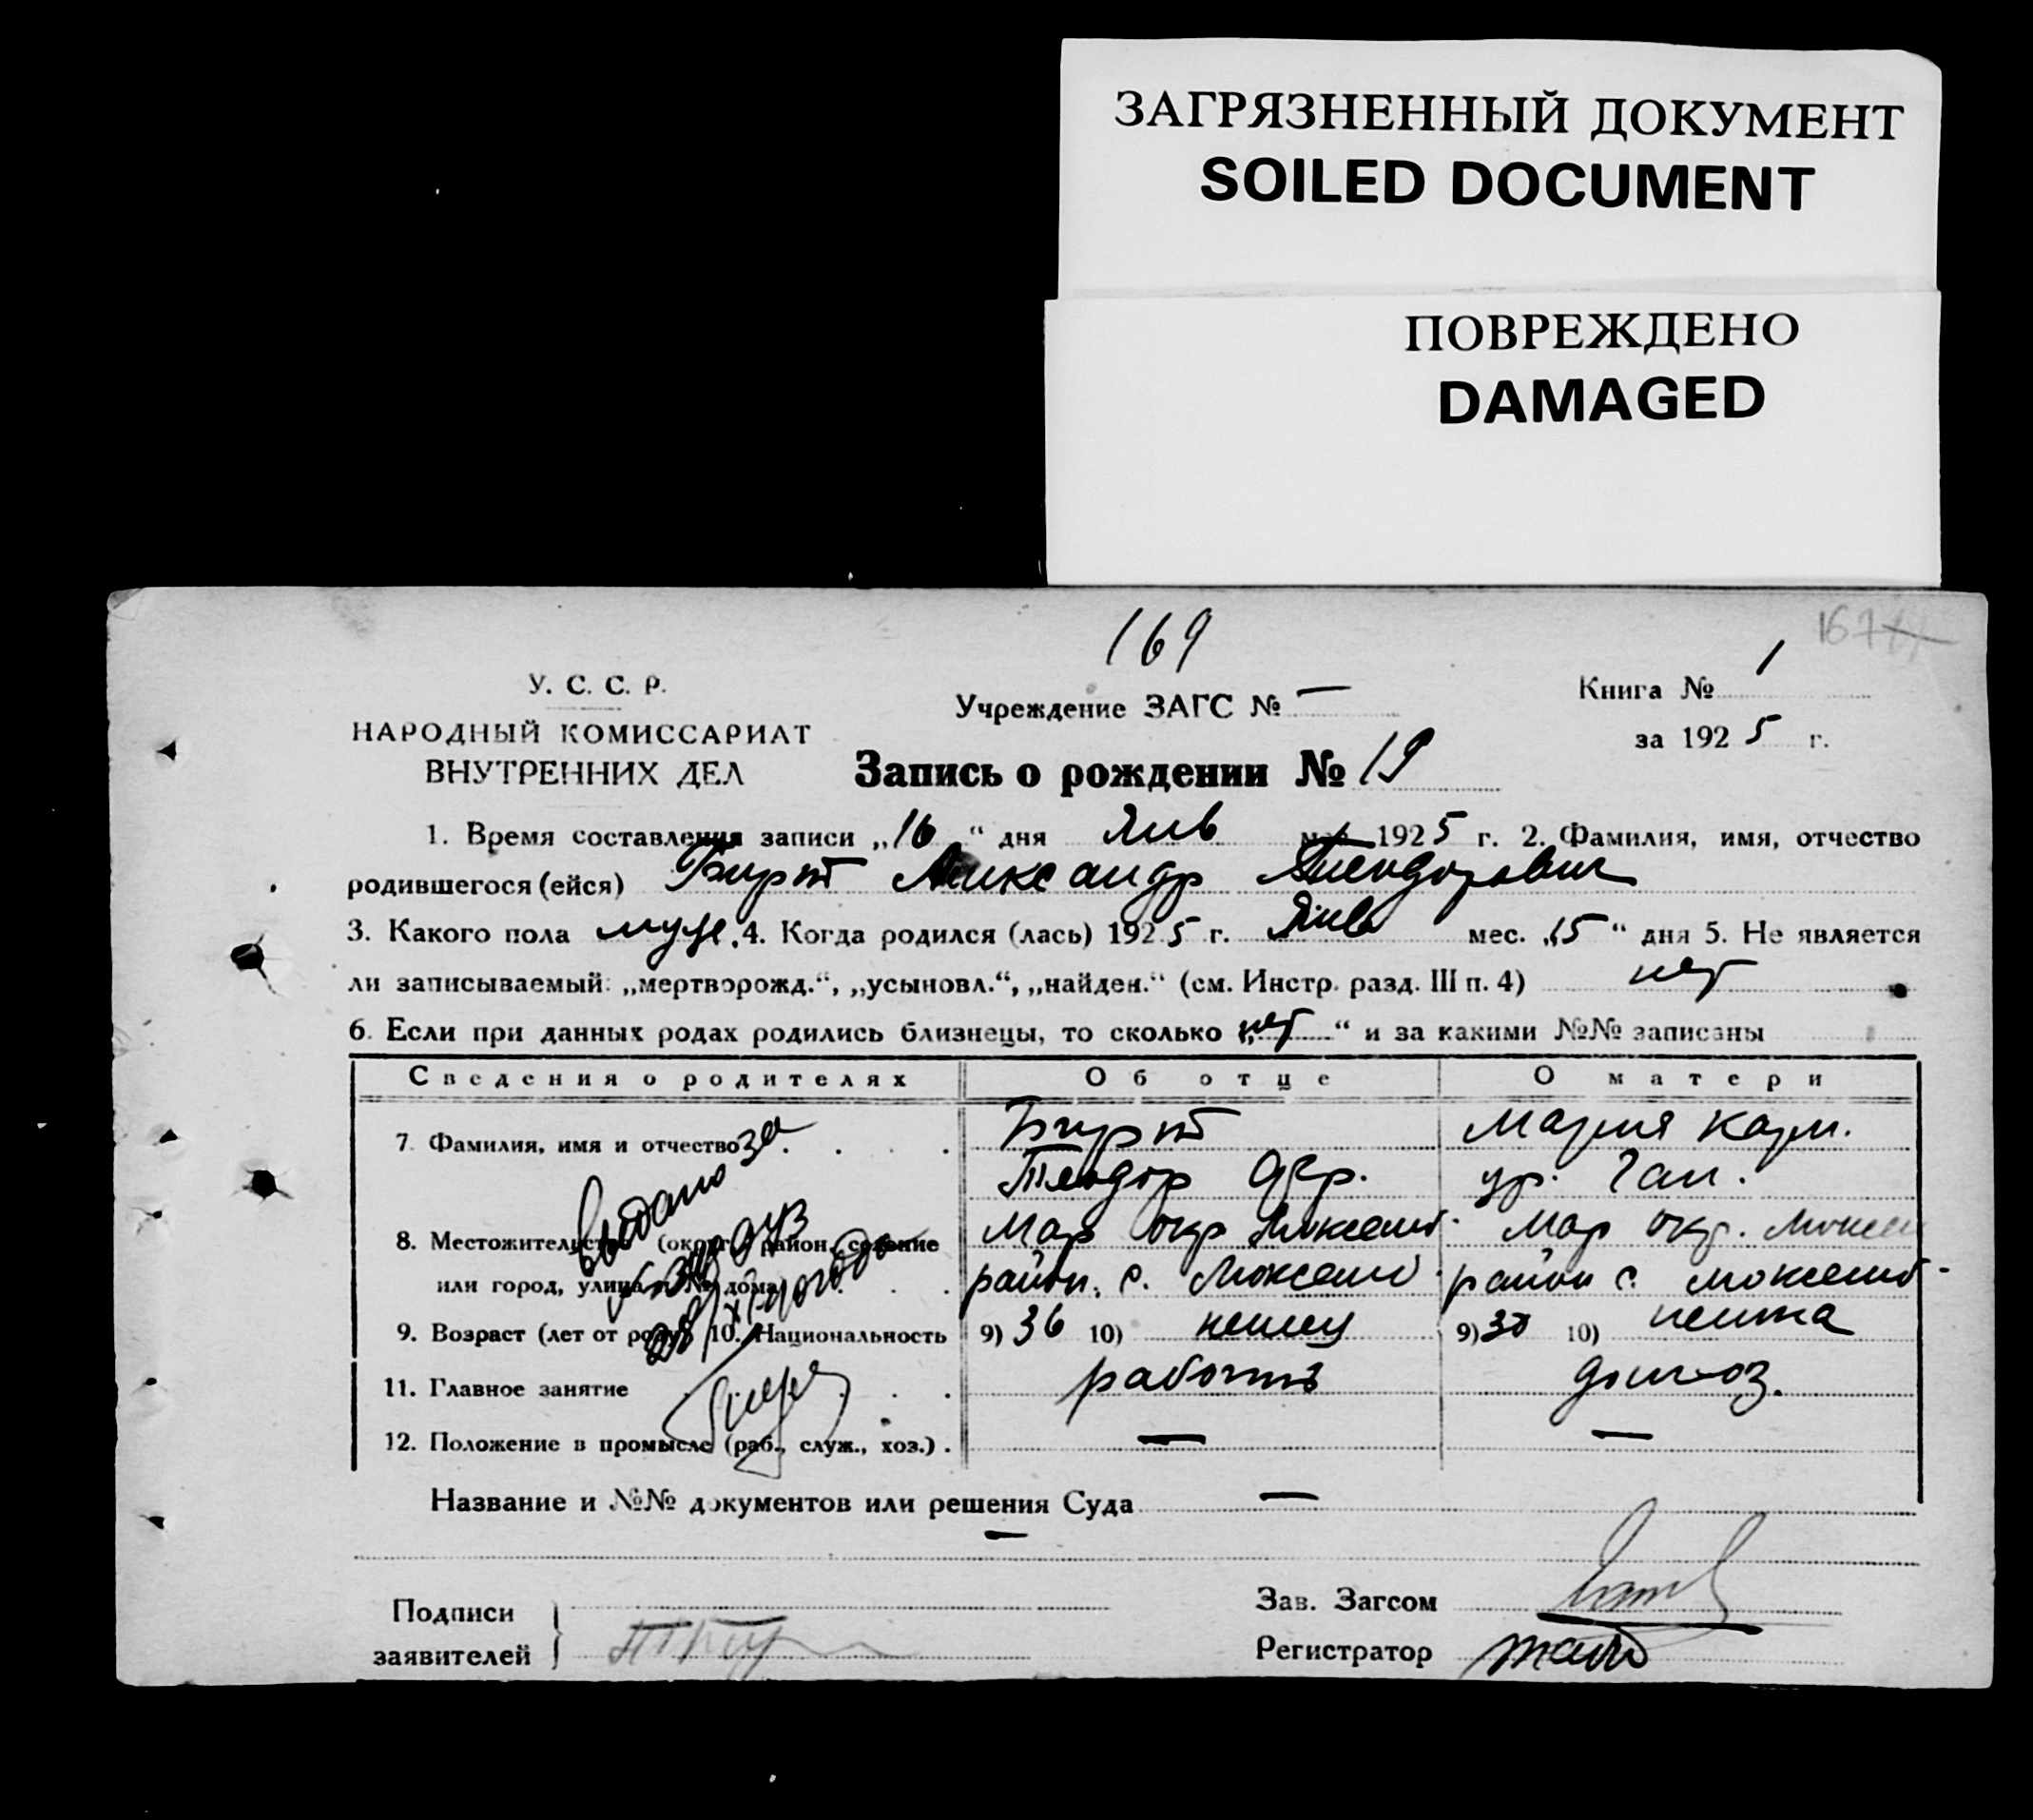 ЗАГРЯЗНЕННЫЙ ДОКУМЕНТ
SOILED DOCUMENT
ПОВРЕЖДЕНО
DAMAGED
169
У. С. С. Р.
НАРОДНЫЙ КОМИССАРИАТ
ВНУТРЕННИХ ДЕЛ
Учреждение ЗАГС № —
Книга № 1
за 1925 г.
Запись о рождении № 19
1. Время составления записи „16“ дня Янв 1925 г. 2. Фамилия, имя, отчество
родившегося (ейся) Бирт Александр Теодорович
3. Какого пола муж. 4. Когда родился (лась) 1925 г. Янв мес. „15“ дня 5. Не является
ли записываемый: „мертворожд.“, „усыновл.“, „найден.“ (см. Инстр. разд. III п. 4) нет
6. Если при данных родах родились близнецы, то сколько „нет“ и за какими №№ записаны
Сведения о родителях Об отце О матери
7. Фамилия, имя и отчество Бирт Мария Карл.
Теодор ур. Гал.
8. Местожительство (округ, район, селение Мар окр Мар окр.
или город, улица и № дома район. с. район с.
9. Возраст (лет от роду) 10. Национальность 9) 36 10) немец 9) 30 10) немка
11. Главное занятие домхоз.
12. Положение в промысле (раб., служ., хоз.) — —
Выдано за
Название и №№ документов или решения Суда —
—
Подписи
заявителей
Зав. Загсом
Регистратор